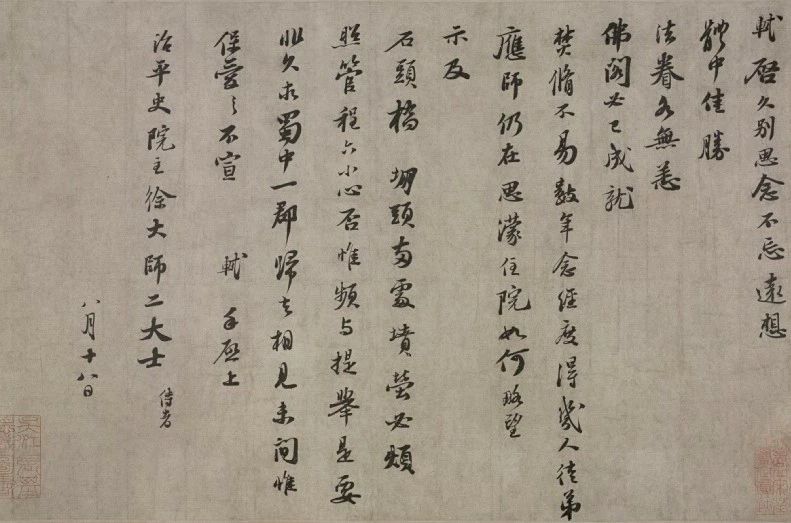 軾啓久別思念不忘遠想
體中佳勝
法眷各無恙
佛閣必已成就
焚脩不易數年念經度得幾人徒弟
應師仍在思濛住院如何略望
示及
石頭橋堋頭兩處墳塋必煩
照管程六小心否惟頻與提舉是要
非久求蜀中一郡歸去相見未間惟
保愛之不宣 軾 手啓上
治平史院主徐大師二大士 侍者
八月十八日